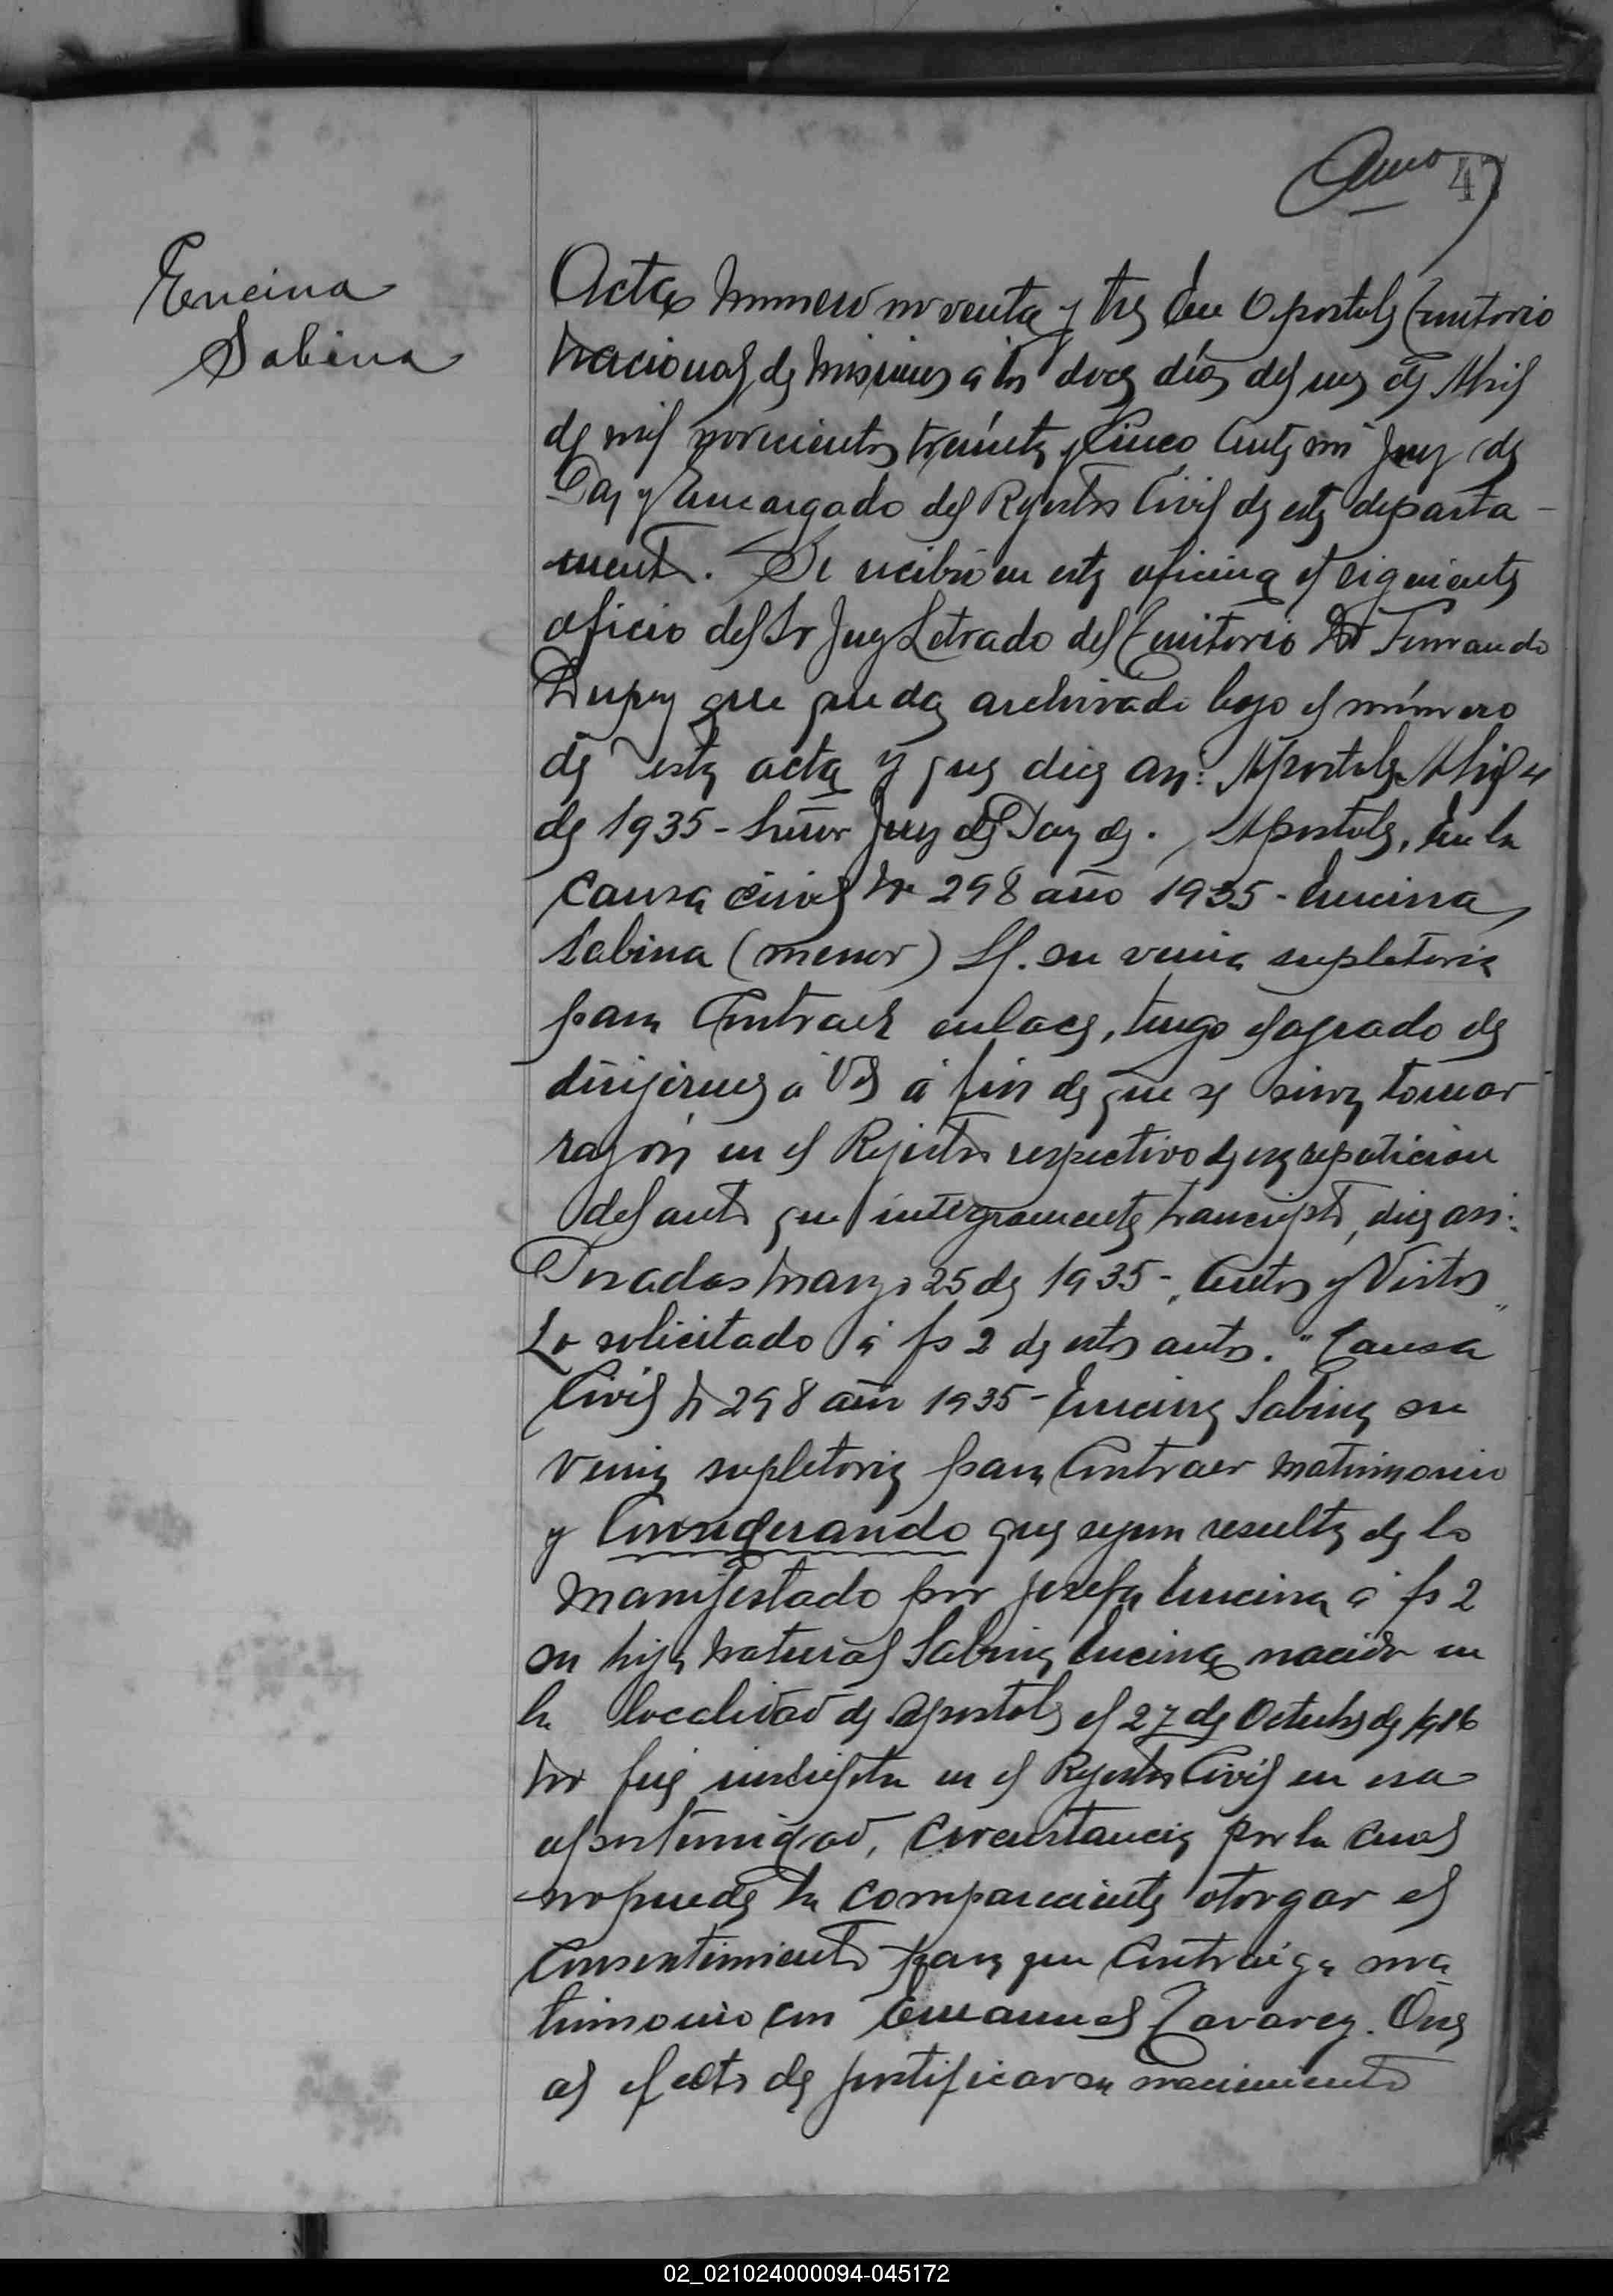 47
Encina
Sabina
Acta número noventa y tres En Apostoles Territorio
Nacional de Misiones a los doce días del mes de Abril
de mil novecientos treinta y Cinco Ante mi Juez de
Paz y Encargado del Registro Civil de este departa-
mento. Se recibió en esta oficina el siguiente
oficio del Sr Juez Letrado del Territorio Dr Fernando
Dupuy que queda archivado bajo el número
de esta acta y que dice asi: Apostoles Abril 4
de 1935 - Señor Juez de Paz de. Apostoles, En la
Causa civil No 298 año 1935 - Encina
Sabina (menor) S/. su venia supletoria
para Contraer enlace, tengo el agrado de
dirijirme a Vd á fin de que se sirva tomar
razón en el Rejistro respectivo de esa repaticion
del auto que integramente transcripto, dice asi:
Posadas Marzo 25 de 1935 -, Autos y Vistos
Lo solicitado á fs 2 de estos autos. "Causa
Civil No 298 año 1935 - Encina Sabina su
venia supletoria para Contraer matrimonio"
y Considerando que segun resulta de lo
manifestado por Josefa Encina á fs 2
su hija natural Sabina Encina nacida en
la localidad de Apostoles el 27 de Octubre de 1916
No fue inscripta en el Registro Civil en esa
oportunidad, circustancia por la cual
no puede la compareciente otorgar el
Consentimiento para que Contraiga ma
trimonio con Emanuel Tavarez. Que
al efecto de justificar su nacimiento
02_021024000094-045172